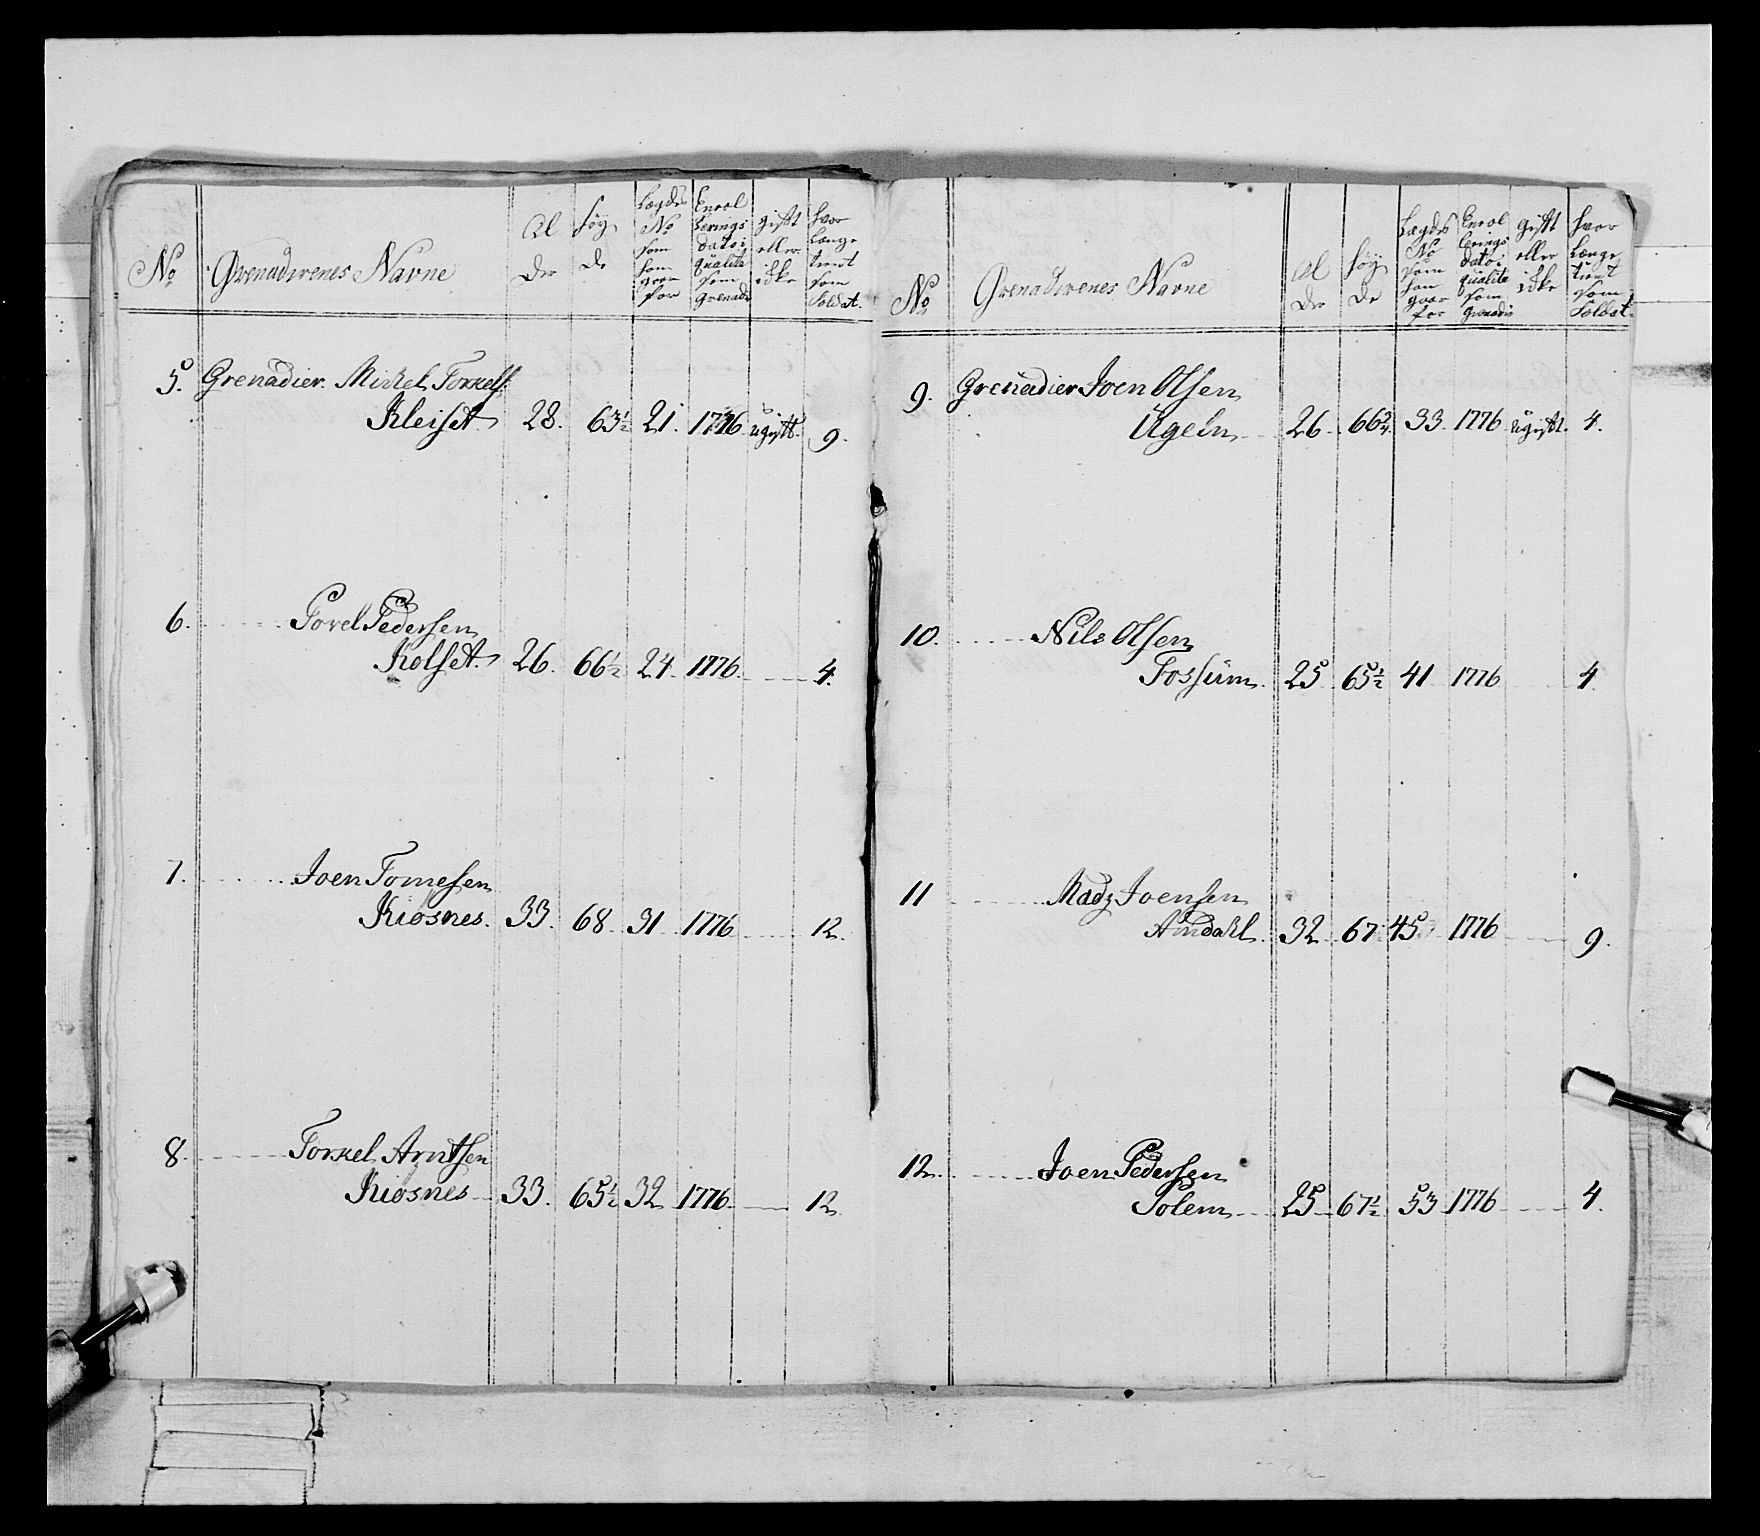 No Grenadirenes Navne Al der Høy de Lægdes No som han gaar for Enrol lerings dato i qualite som Grenadr gifft eller icke hvor Længe tient som Soldat.
5. Grenadier. Mickel Torkels:
Kleiset 28. 63½ 21. 1776 ugift. 9.
6. Povel Pedersen
Kolset. 26. 66½ 24. 1776. 4.
7. Joen Tomesen
Kiøsnes. 33. 68. 31 1776. 12.
8. Torkel Arntsen
Kiøsnes 33. 65½ 32 1776. 12.
No Grenadirenes Navne Al der Høy de Lægdes No som han gaar for Enrol lerings dato i qualite som Grenadir gifft eller icke hvor Længe tient som Soldat.
9. Grenadier Joen Olsen
Ugeln 26 66¾ 33. 1776 ugift. 4.
10. Nils Olsen
Fossum. 25 65½ 41 1776 4.
11 Madz Joensen
Amdahl. 32 67 45 1776 9.
12. Joen Pedersen
Solem 25 67½ 53 1776 4.